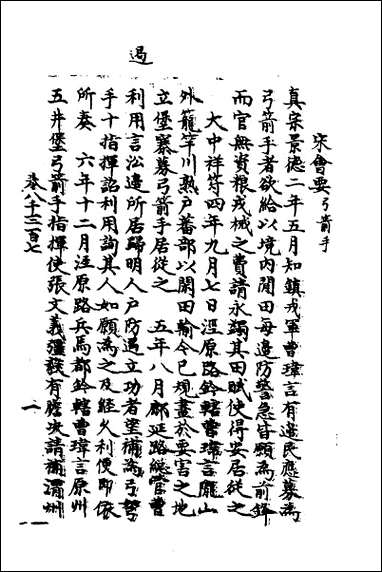 過
宋會要 弓箭手
真宗景德二年五月知鎮戎軍曹瑋言有邊民應募為
弓箭手者欲給以境內閒田每邊防警急皆願為前鋒
而官無資粮戎械之費請永蠲其田賦使得安居從之
大中祥符四年九月七日涇原路鈐轄曹瑋言隴山
外籠竿川熟戶蕃部以閒田輸令已規畫於要害之地
立堡寨募弓箭手居從之 五年八月鄜延路總管曹
利用言沿邊所居歸明人戶防遏立功者望補為弓弩
手十指揮詔利用詢其人如願為之及經久利便即依
所奏 六年十二月涇原路兵馬都鈐轄曹瑋言原州
五井堡弓箭手指揮使張文義彊毅有膽決請補渭州
卷八千三百七
一